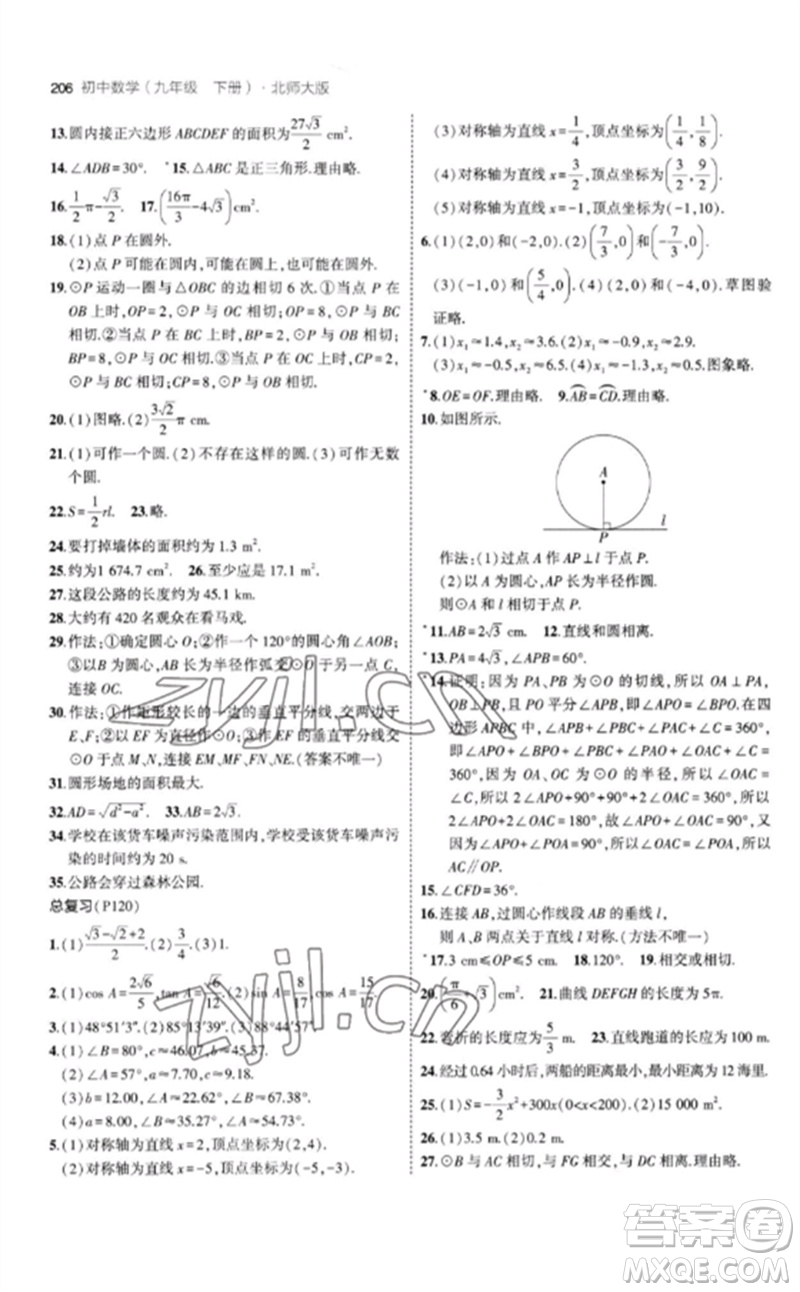 206 初中数学(九年级 下册)·北师大版
13.圆内接正六边形 ABCDEF 的面积为27√3/2 cm².
14.∠ADB=30°. *15.△ABC 是正三角形.理由略.
16.1/2π-√3/2. 17.(16π/3-4√3)cm².
18.(1)点 P 在圆外.
(2)点 P 可能在圆内,可能在圆上,也可能在圆外.
19.⊙P 运动一圈与△OBC 的边相切 6 次.①当点 P 在
OB 上时,OP=2,⊙P 与 BC 相切;OP=8,⊙P 与 OC
相切.②当点 P 在 BC 上时,BP=2,⊙P 与 OC 相切;
BP=8,⊙P 与 OB 相切.③当点 P 在 OC 上时,CP=2,
⊙P 与 OB 相切;CP=8,⊙P 与 BC 相切.
20.(1)图略.(2)3√2/2π cm.
21.(1)可作一个圆.(2)不存在这样的圆.(3)可作无数
个圆.
22.S=1/2rl. 23.略.
24.要打掉墙体的面积约为 1.3 m².
25.约为1 674.7 cm². 26.至少应是 17 m.
27.这段公路的长度约为 95.1 m.
28.大约有 420 名观众在看马戏.
29.作法:①确定圆心 O;②作一个 120°的圆心角∠AOB;
③以 B 为圆心,AB 长为半径作弧交⊙O 于另一点 C,
连接 OC.
30.作法:①作矩形较长的一边的垂直平分线,交两边于
E、F;②以 EF 为直径作⊙O;③作 EF 的垂直平分线交
⊙O 于点 M、N,连接 EM、MF、FN、NE.(答案不唯一)
31.圆形场地的面积最大.
32.AD=√(d²-a²). 33.AB=2√3.
34.学校在该货车噪声污染范围内,学校受该货车噪声污
染的时间约为 20 s.
35.公路会穿过森林公园.
总复习(P120)
1.(1)(√3-√2+2)/2.(2)3/4.(3)1.
2.(1)cos A=2√6/5,tan A=√6/12.(2)sin A=8/17,cos A=15/17.
3.(1)48°51′3″.(2)85°13′39″.(3)9°31′57″.
4.(1)∠B=80°,c≈46.07,b≈45.37.
(2)∠A=57°,c≈16.87,b≈9.19.
(3)b=12.00,∠A≈22.62°,∠B≈67.38°.
(4)a=8.00,∠B≈35.27°,∠A≈54.73°.
5.(1)对称轴为直线 x=2,顶点坐标为(2,4).
(2)对称轴为直线 x=-5,顶点坐标为(-5,-3).
(3)对称轴为直线 x=1/4,顶点坐标为(1/4,1/8).
(4)对称轴为直线 x=3/2,顶点坐标为(3/2,9/2).
(5)对称轴为直线 x=-1,顶点坐标为(-1,10).
6.(1)(2,0)和(-2,0).(2)(7/3,0)和(-7/3,0).
(3)(-1,0)和(5/4,0).(4)(2,0)和(-4,0).草图验
证略.
7.(1)x₁≈1.4,x₂≈3.6.(2)x₁≈-0.9,x₂≈2.9.
(3)x₁≈-0.5,x₂≈6.5.(4)x₁≈-1.3,x₂≈5.3.图象略.
*8.OE=OF.理由略. 9.AB=CD.理由略.
10.如图所示.
A
P
l
作法:(1)过点 A 作 AP⊥l 于点 P.
(2)以 A 为圆心,以 AP 长为半径作圆.
则⊙A 和 l 相切于点 P.
*11.AB=2√3 cm. 12.直线和圆相离.
*13.PA=4√3,∠APB=60°.
*14.证明:因为 PA、PB 为⊙O 的切线,所以 OA⊥PA,
OB⊥PB,且 PO 平分∠APB,∠APO=∠BPO.在四
边形 APBC 中,∠APB+∠PBC+∠C+∠PAC=360°,
即∠APO+∠BPO+∠PBO+∠OBC+∠C+∠OAC+
∠PAO=360°.因为 OA、OC 为⊙O 的半径,所以
∠C=∠OAC.所以 2∠APO+90°+90°+2∠OAC=360°,
2∠APO+2∠OAC=180°,故∠APO+∠OAC=90°.又
因为∠APO+∠POA=90°,所以∠OAC=∠POA,所以
AC∥OP.
15.∠CFD=36°.
16.连接 AB,过圆心作线段 AB 的垂线 l,
则 A、B 两点关于直线 l 对称.(方法不唯一)
*17.3 cm≤OP≤5 cm. *18.120°. 19.相交或相切.
*20.(π/6+√3). 21.曲线 DEFGH 的长度为 5π.
22.弯折的长度应为5/3 m. 23.直线跑道的长应为 100 m.
24.经过 0.64 小时后,两船的距离最小,最小距离为 12 海里.
25.(1)S=-3/2x²+300x(0<x<200).(2)15 000 m².
26.(1)3.5 m.(2)0.2 m.
27.⊙B 与 AC 相切,与 FG 相交,与 DC 相离.理由略.
zyjl.cn
zyjl.cn
答案卷